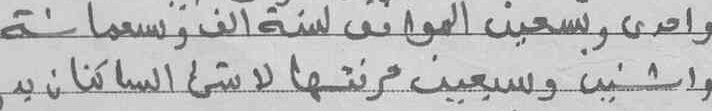 واحدى وتسعين الموافق لسنة الف وتسعمائة
واثنين وسبعين مرنتها لا شئ الساكنان بد